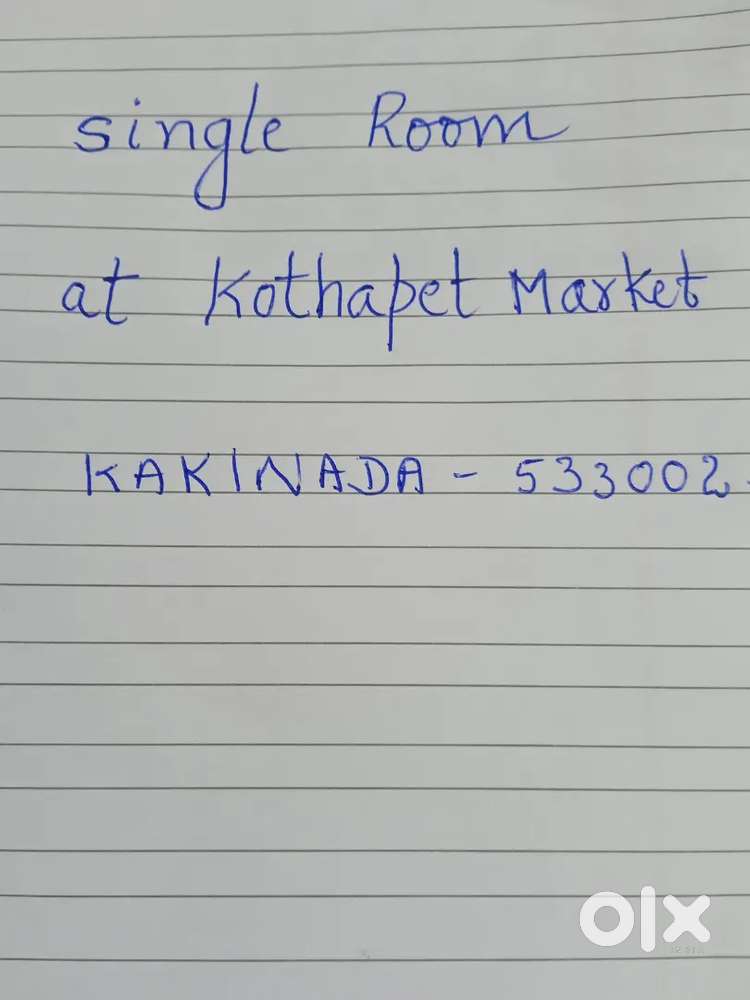 single Room
at Kothapet Market
KAKINADA - 533002.
olx